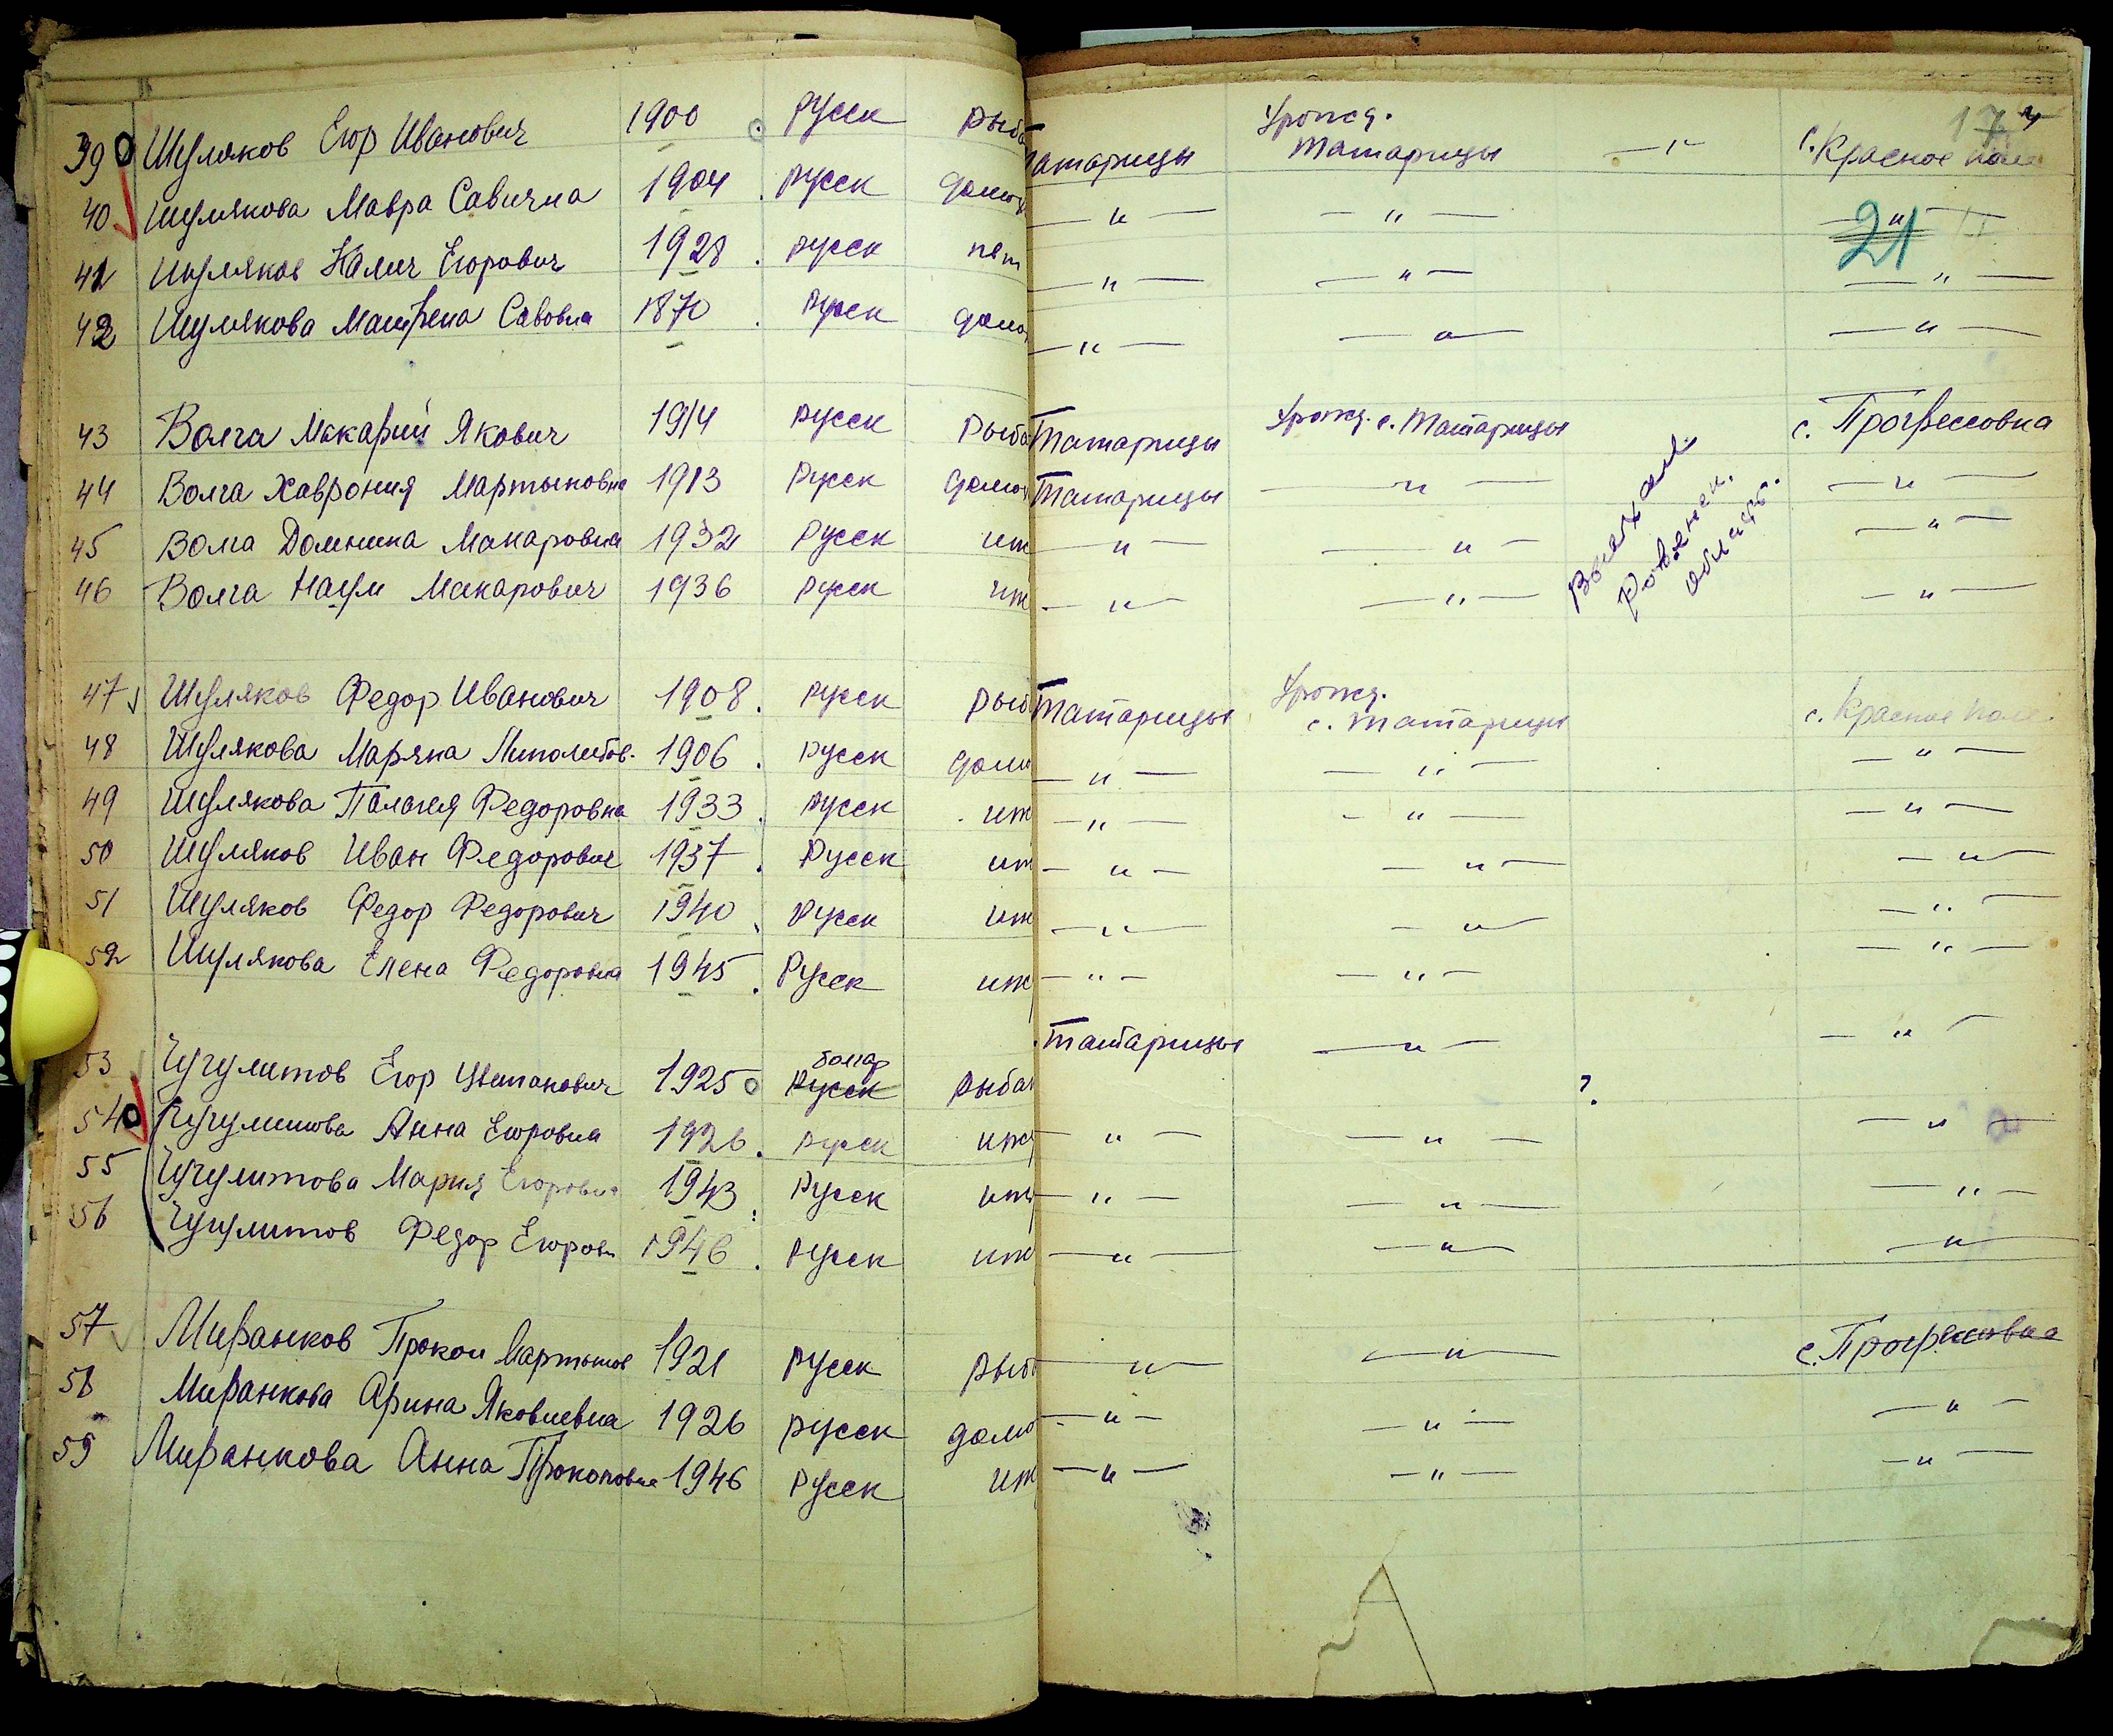 17
21
39 Шуляков Егор Иванович 1900 русск рыба Татарицы Урожд. Татарицы — " — с. Красное поле
40 Шулякова Мавра Савична 1904 русск домох — " — — " — — " —
41 Шуляков Калич Егорович 1928 русск — " — — " — — " —
42 Шулякова Матрена Савовна 1870 русск домо — " — — " — — " —
43 Волга Макарий Якович 1914 русск рыба Татарицы Урожд. с. Татарицы с. Прогрессовка
44 Волга Хаврония Мартыновна 1913 русск домох Татарицы — " — — " —
45 Волга Домника Макаровна 1932 русск иж — " — — " — — " —
46 Волга Наум Макарович 1936 русск иж — " — — " — — " —
Выехали
Ровенск.
област.
47 Шуляков Федор Иванович 1908 русск рыб Татарицы Урожд. с. Татарицы с. Красное поле
48 Шулякова Маряна Липолитов. 1906 русск дом — " — — " — — " —
49 Шулякова Палагея Федоровна 1933 русск иж — " — — " — — " —
50 Шуляков Иван Федорович 1937 русск иж — " — — " — — " —
51 Шуляков Федор Федорович 1940 русск иж — " — — " — — " —
52 Шулякова Елена Федоровна 1945 Русск иж — " — — " — — " —
53 Чугулитов Егор 1925 русск болгар рыбак Татарицы — " — ? — " —
54 Чугулитова Анна Егоровна 1926 русск иж — " — — " — — " —
55 Чугулитова Мария Егоровна 1943 русск иж — " — — " — — " —
56 Чугулитов Федор Егорови 1946 русск иж — " — — " — — " —
57 Миранков Прокоп Мартынов 1921 русск рыб — " — — " — с. Прогрессовка
58 Миранкова Арина Яковлевна 1926 русск домо — " — — " — — " —
59 Миранкова Анна Прокоповна 1946 русск иж — " — — " — — " —